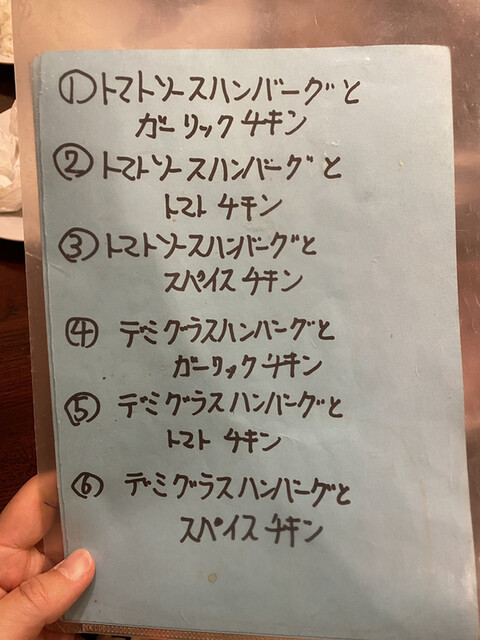 ①トマトソースハンバーグと
ガーリックチキン
②トマトソースハンバーグと
トマトチキン
③トマトソースハンバーグと
スパイスチキン
④デミグラスハンバーグと
ガーリックチキン
⑤デミグラスハンバーグと
トマトチキン
⑥デミグラスハンバーグと
スパイスチキン